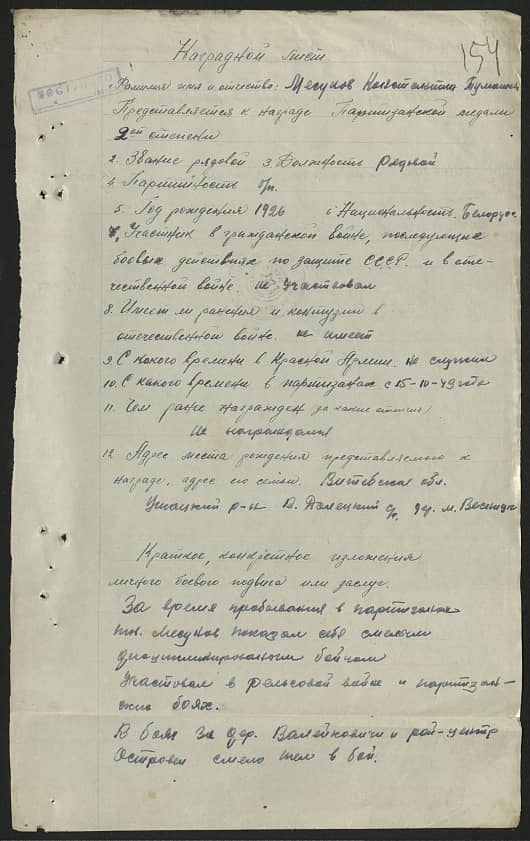 154
Наградной лист
Фамилия имя и отчество: Месуков Константин
Представляется к награде Партизанской медали
2ой степени
2. Звание рядовой 3. Должность рядовой
4. Партийность б/п.
5. Год рождения 1926 6 Национальность. Белорус.
7. Участник в гражданской войне, последующих
боевых действиях по защите СССР. и в оте-
чественной войне. не участвовал
8. Имеет ли ранения и контузии в
отечественной войне. не имеет
9. С какого времени в Красной Армии. не служил
10. С какого времени в партизанах с 15-10-43 года
11. Чем ранее награжден (за какие отличия)
Не награждался
12 Адрес места рождения представляемого к
награде, адрес его семьи. Витебская обл.
Ушацкий р-н В. Долецкий с/с дер. м.
Краткое, конкретное изложения
личного боевого подвига или заслуг.
За время пребывания в партизанах
тов. Месуков показал себя смелым
дисциплинированным бойцом
Участвовал в рельсовой войне и партизан-
ских боях.
В боях за дер. Валейковичи и рай-центр
Островец смело шел в бой.